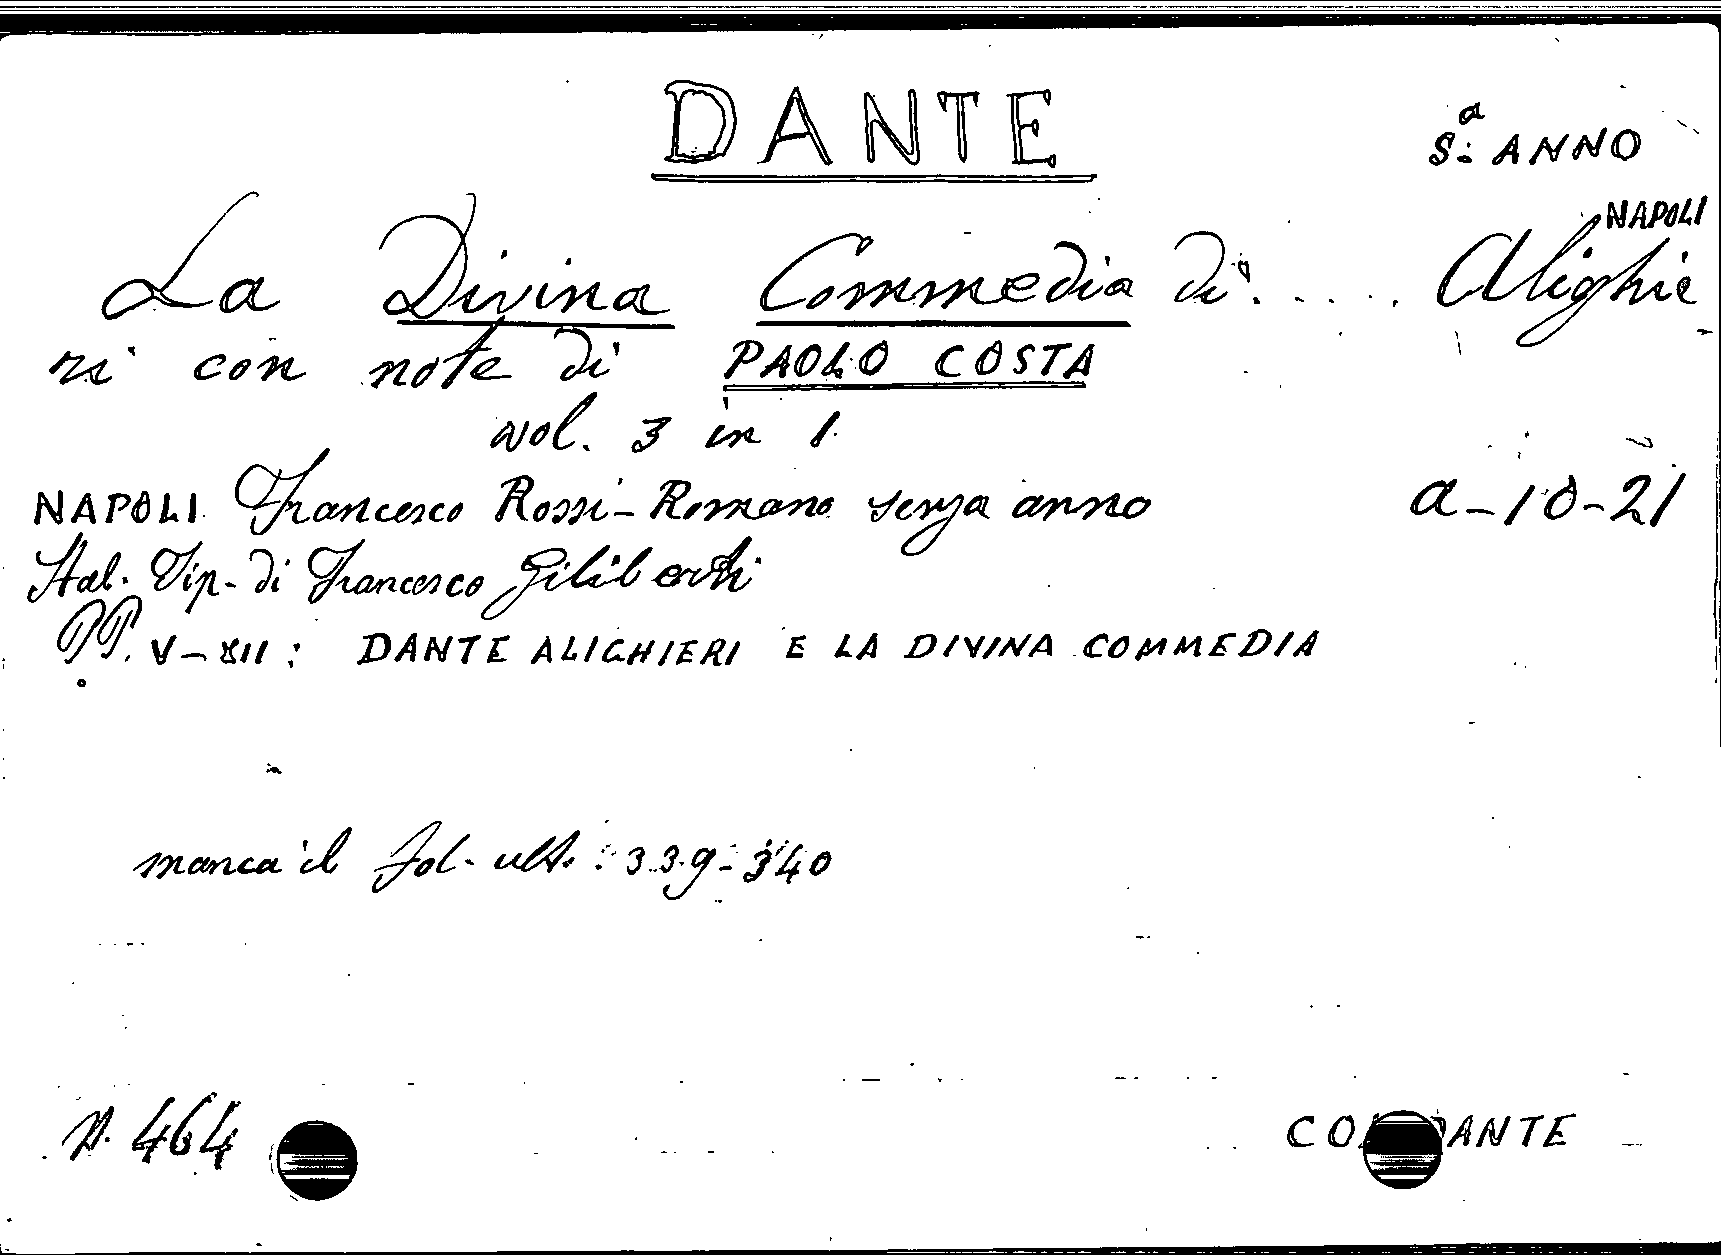 DANTE
S.a ANNO
NAPOLI
La Divina Commedia di..... Alighie
ri con note di PAOLO COSTA
vol. 3 in 1
NAPOLI Francesco Rossi-Romano senza anno a-10-21
Stab. Tip. di Francesco Giliberti
PP. V-XII: DANTE ALIGHIERI E LA DIVINA COMMEDIA
manca il fol. ult. : 339-340
N. 464
DANTE